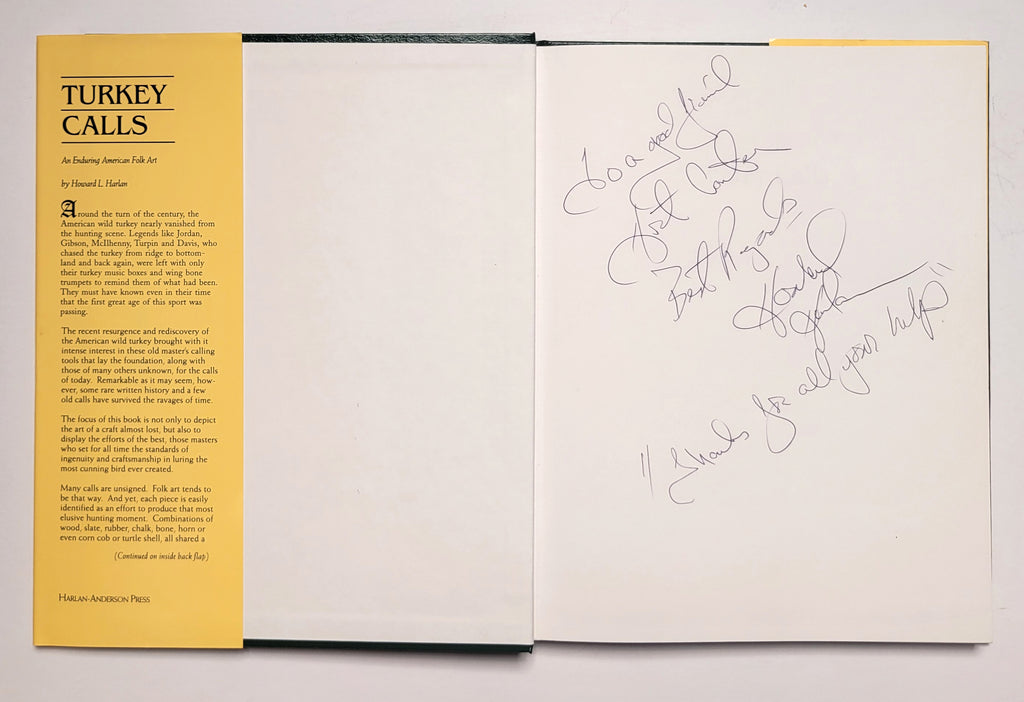 TURKEY
CALLS
An Enduring American Folk Art
by Howard L. Harlan
Around the turn of the century, the
American wild turkey nearly vanished from
the hunting scene. Legends like Jordan,
Gibson, McIlhenny, Turpin and Davis, who
chased the turkey from ridge to bottom-
land and back again, were left with only
their turkey music boxes and wing bone
trumpets to remind them of what had been.
They must have known even in their time
that the first great age of this sport was
passing.
The recent resurgence and rediscovery of
the American wild turkey brought with it
intense interest in these old master's calling
tools that lay the foundation, along with
those of many others unknown, for the calls
of today. Remarkable as it may seem, how-
ever, some rare written history and a few
old calls have survived the ravages of time.
The focus of this book is not only to depict
the art of a craft almost lost, but also to
display the efforts of the best, those masters
who set for all time the standards of
ingenuity and craftsmanship in luring the
most cunning bird ever created.
Many calls are unsigned. Folk art tends to
be that way. And yet, each piece is easily
identified as an effort to produce that most
elusive hunting moment. Combinations of
wood, slate, rubber, chalk, bone, horn or
even corn cob or turtle shell, all shared a
(Continued on inside back flap)
HARLAN-ANDERSON PRESS
To a good friend
Best Regards
Howard
Harlan
"Thanks for all your help!"